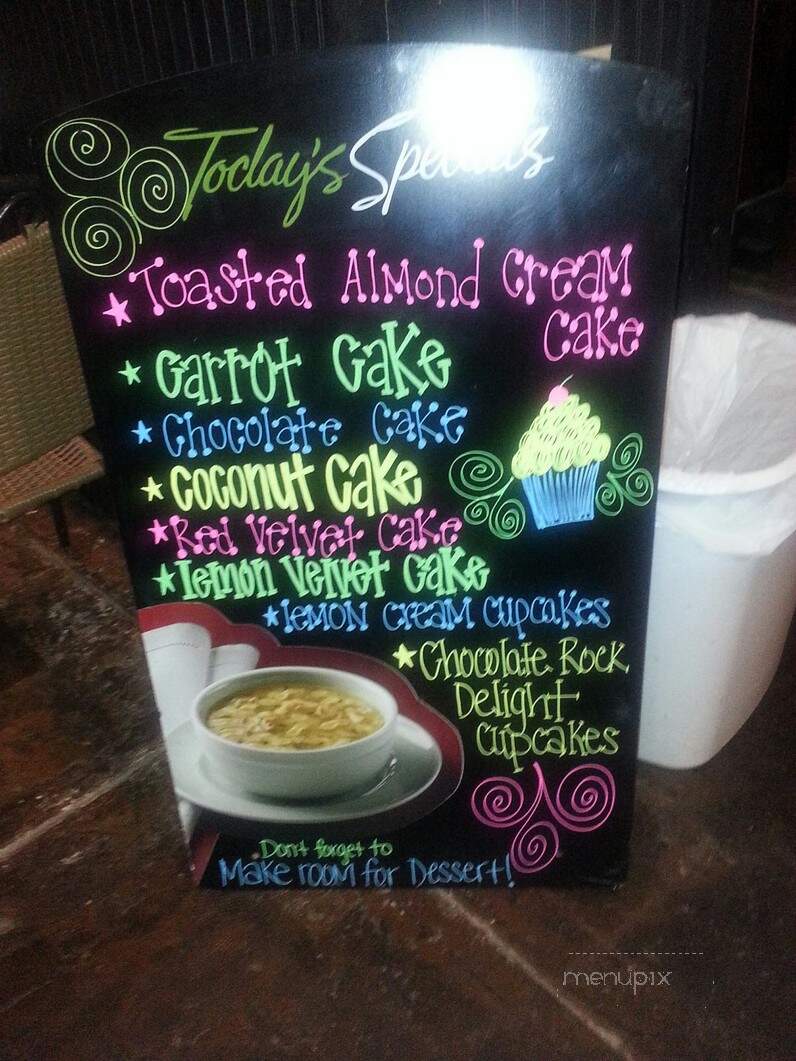 Today's Specials
Toasted Almond Cream
Cake
Carrot Cake
Chocolate Cake
Coconut Cake
Red Velvet Cake
Lemon Velvet Cake
Lemon Cream Cupcakes
Chocolate Rock
Delight
Cupcakes
Don't forget to
Make room for Dessert!
menupix